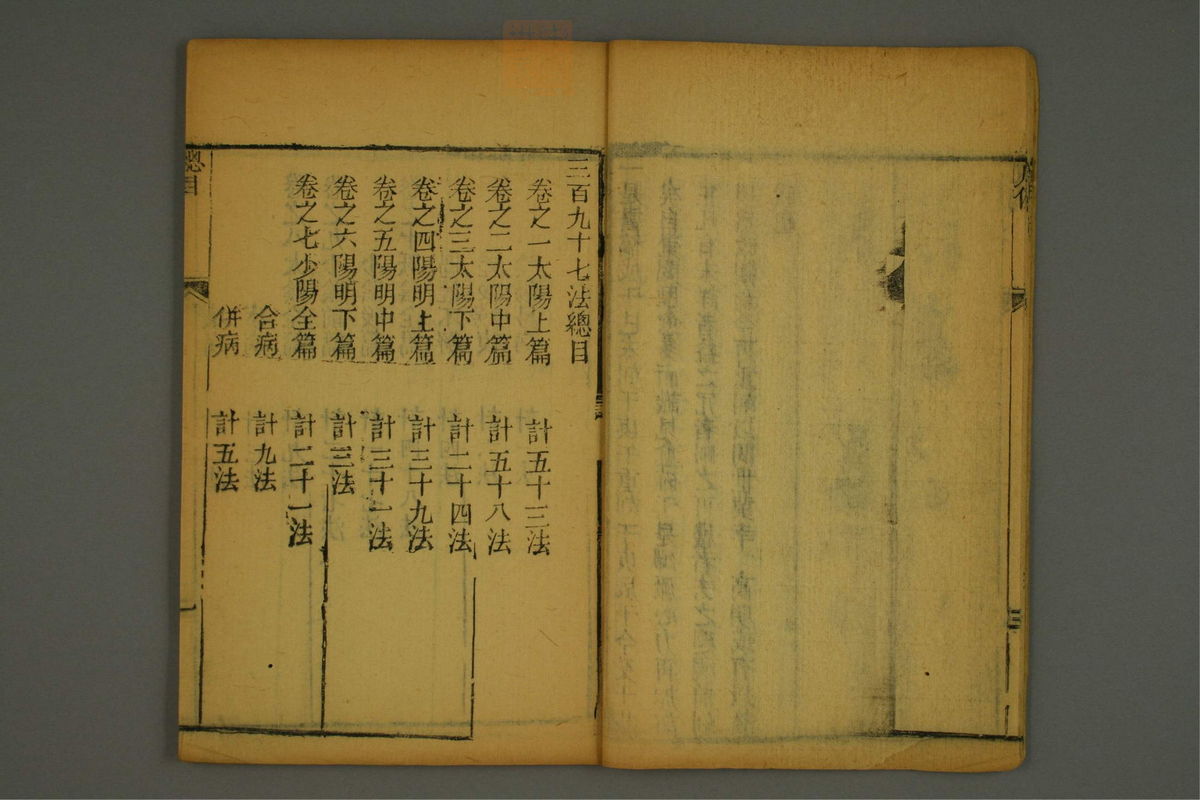 三百九十七法總目
卷之一太陽上篇 計五十三法
卷之二太陽中篇 計五十八法
卷之三太陽下篇 計二十四法
卷之四陽明上篇 計三十九法
卷之五陽明中篇 計三十一法
卷之六陽明下篇 計三法
卷之七少陽全篇 計二十一法
合病 計九法
併病 計五法
總目